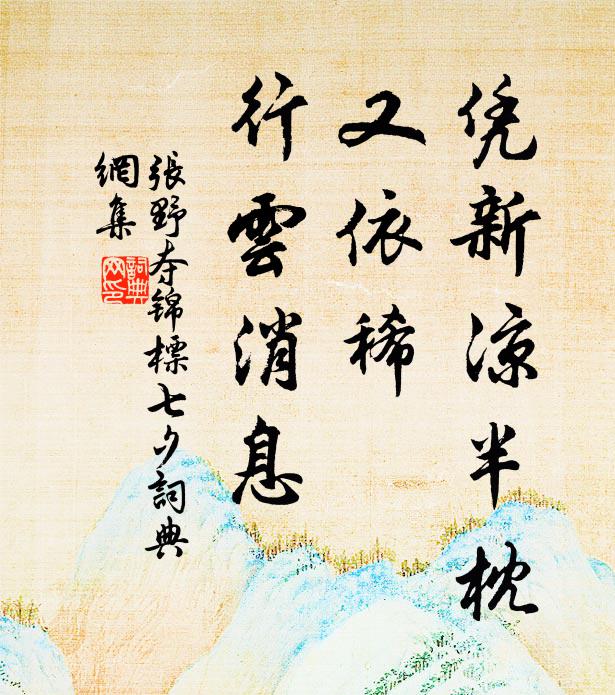 凭新凉半枕
又依稀
行雲消息
張野夺锦標七夕詞典
網集
詞典
网印